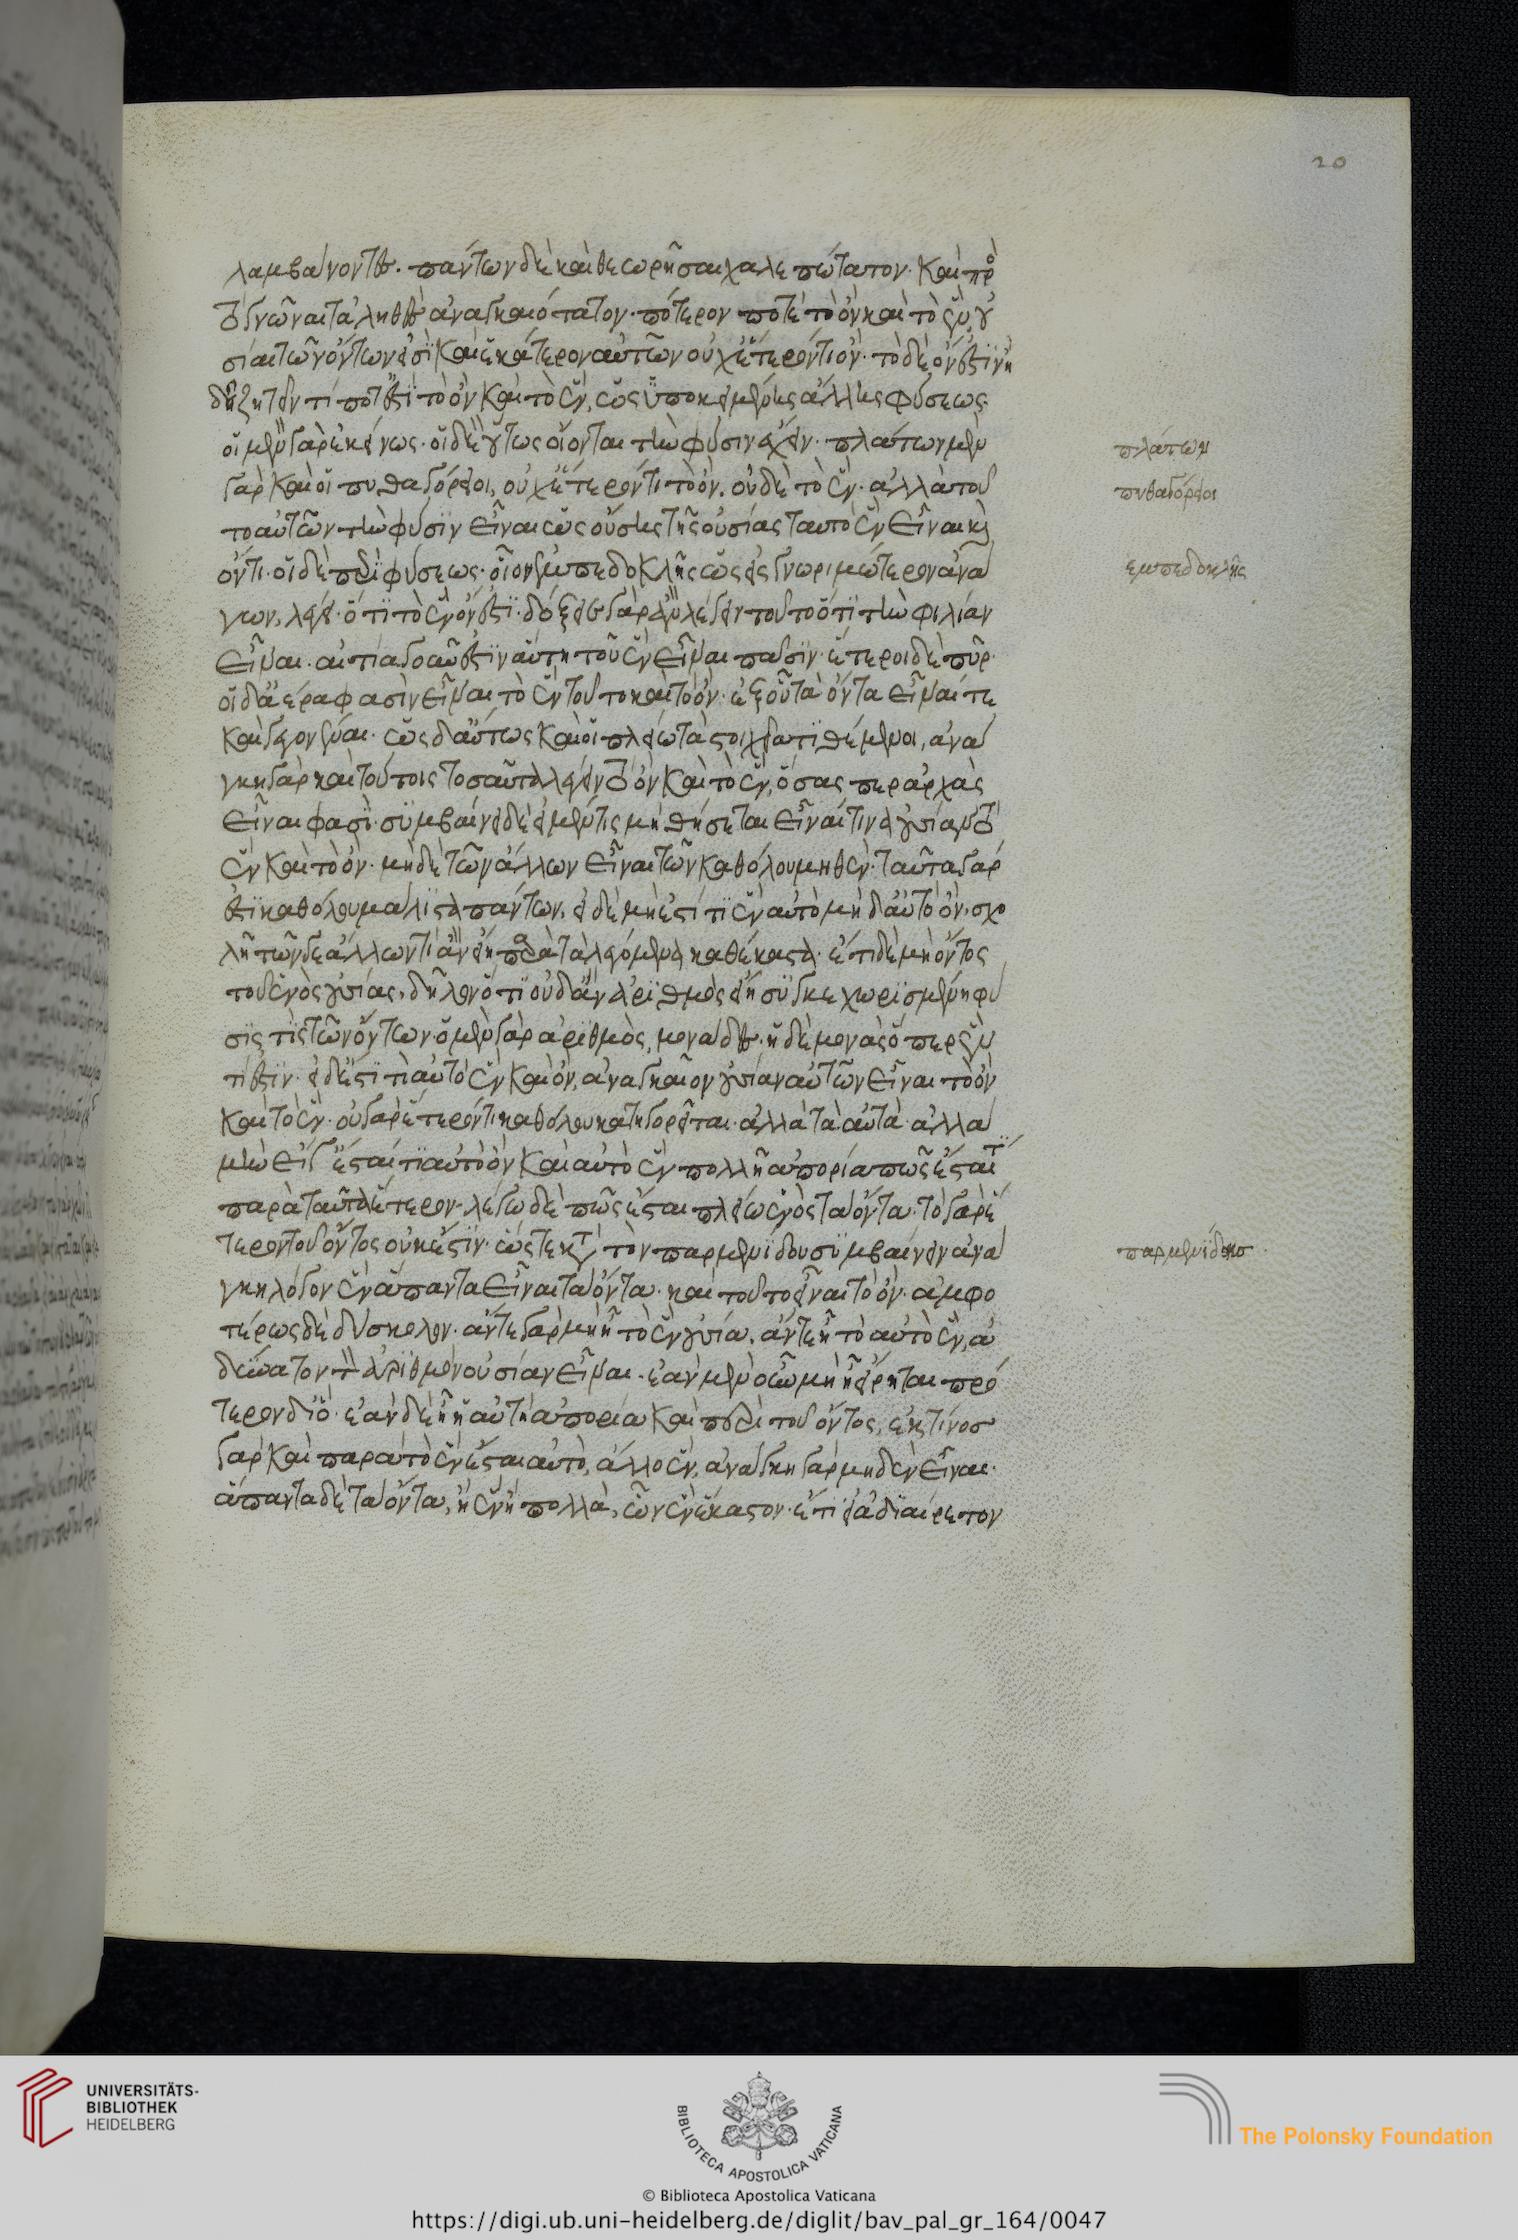 20
λαμβάνοντες. πάντων δὲ καὶ θεωρῆσαι χαλεπώτατον. καὶ πρὸς
τὸ γνῶναι τἀληθὲς ἀναγκαιότατον. πότερον ποτὲ τὸ ὂν καὶ τὸ ἓν, οὐ
σίαι τῶν ὄντων εἰσὶ καὶ ἑκάτερον αὐτῶν οὐχ ἕτερόν τι ὄν. τὸ δὲ ὄν ἐστιν ἢ
δεῖ ζητεῖν τί ποτ' ἐστὶ τὸ ὂν καὶ τὸ ἓν, ὡς ὑποκειμένης ἄλλης φύσεως.
οἱ μὲν γὰρ ἐκείνως. οἱ δὲ οὕτως οἴονται τὴν φύσιν ἔχειν. πλάτων μὲν
γὰρ καὶ οἱ πυθαγόρειοι, οὐχ ἕτερόν τι τὸ ὂν, οὐδὲ τὸ ἕν. ἀλλὰ τοῦ
το αὐτῶν τὴν φύσιν εἶναι ὡς οὔσης τῆς οὐσίας ταυτὸ ἓν εἶναι καὶ
ὄντι. οἱ δὲ περὶ φύσεως. οἷον ἐμπεδοκλῆς ὡς εἰς γνωριμώτερον ἀνά
γων, λέγει ὅ τι τὸ ἓν ὄν ἐστι. δόξειε γὰρ ἂν λέγειν τοῦτο ὅτι τὴν φιλίαν
εἶναι. αἰτία γοῦν ἐστὶν αὕτη τοῦ ἓν εἶναι πᾶσιν. ἕτεροι δὲ πῦρ.
οἱ δ' ἀέρα φασὶν εἶναι τὸ ἓν τοῦτο καὶ τὸ ὄν. ἐξ οὗ τὰ ὄντα εἶναί τε
καὶ γεγονέναι. ὡς δ' αὔτως καὶ οἱ πλείω τὰ στοιχεῖα τιθέμενοι, ἀνά
γκη γὰρ καὶ τούτοις τοσαῦτα λέγειν τὸ ὂν καὶ τὸ ἓν, ὅσας περ ἀρχὰς
εἶναι φασί. συμβαίνει δὲ εἰ μέν τις μὴ θήσεται εἶναί τινα οὐσίαν τὸ
ἓν καὶ τὸ ὄν. μηδὲ τῶν ἄλλων εἶναι τῶν καθόλου μηθέν. ταῦτα γάρ
ἐστι καθόλου μάλιστα πάντων. εἰ δὲ μὴ ἔστί τι ἓν αὐτὸ μὴ δ' αὐτὸ ὄν. σχο
λῆ τῶν γε ἄλλων τὶ ἂν εἴη παρὰ τὰ λεγόμενα καθέκαστα. ἔτι δὲ μὴ ὄντος
τοῦ ἑνὸς οὐσίας, δῆλον ὅτι οὐδ' ἂν ἀριθμὸς εἴη ὥς γε κεχωρισμένη φύ
σις τὶς τῶν ὄντων. ὁ μὲν γὰρ ἀριθμὸς, μονάδες. ἡ δὲ μονὰς ὅπερ ἕν
τί ἐστιν. εἰ δ' ἔστί τι αὐτὸ ἓν καὶ ὂν, ἀναγκαῖον οὐσίαν αὐτῶν εἶναι τὸ ὂν
καὶ τὸ ἕν. οὐ γὰρ ἕτερόν τι καθόλου κατηγορεῖται. ἀλλὰ τὰ αὐτά. ἀλλὰ
μὴν εἴ γ' ἔσται τι αὐτὸ ὂν καὶ αὐτὸ ἓν πολλὴ ἀπορία πῶς ἔσται τι
παρὰ ταῦτα ἕτερον. λέγω δὲ πῶς ἔσται πλείω ἑνὸς τὰ ὄντα. τὸ γὰρ ἕ
τερον τοῦ ὄντος οὐκ ἔστιν. ὥστε κατὰ τὸν παρμενίδου συμβαίνειν ἀνά
γκη λόγον ἓν ἅπαντα εἶναι τὰ ὄντα. καὶ τοῦτο εἶναι τὸ ὄν. ἀμφο
τέρως δὲ δύσκολον. ἄν τε γὰρ μὴ ᾖ τὸ ἓν οὐσία, ἄν τε ᾖ τὸ αὐτὸ ἓν, ἀ
δύνατον τὸν ἀριθμὸν οὐσίαν εἶναι. ἐὰν μὲν οὖν μὴ ᾖ εἴρηται πρό
τερον διό. ἐὰν δὲ ᾖ ἡ αὐτὴ ἀπορία καὶ περὶ τοῦ ὄντος, ἐκ τίνος
γὰρ καὶ παρὰ τὸ ἓν ἔσται αὐτὸ, ἄλλο ἕν, ἀνάγκη γὰρ μηδὲν εἶναι.
ἅπαντα δὲ τὰ ὄντα, ἢ ἓν ἢ πολλὰ, ὧν ἓν ἕκαστον. ἔτι εἰ ἀδιαίρετον
πλάτων
πυθαγόρειοι
ἐμπεδοκλῆς
παρμενίδης
UNIVERSITÄTS-
BIBLIOTHEK
HEIDELBERG
BIBLIOTECA APOSTOLICA VATICANA
The Polonsky Foundation
© Biblioteca Apostolica Vaticana
https://digi.ub.uni-heidelberg.de/diglit/bav_pal_gr_164/0047